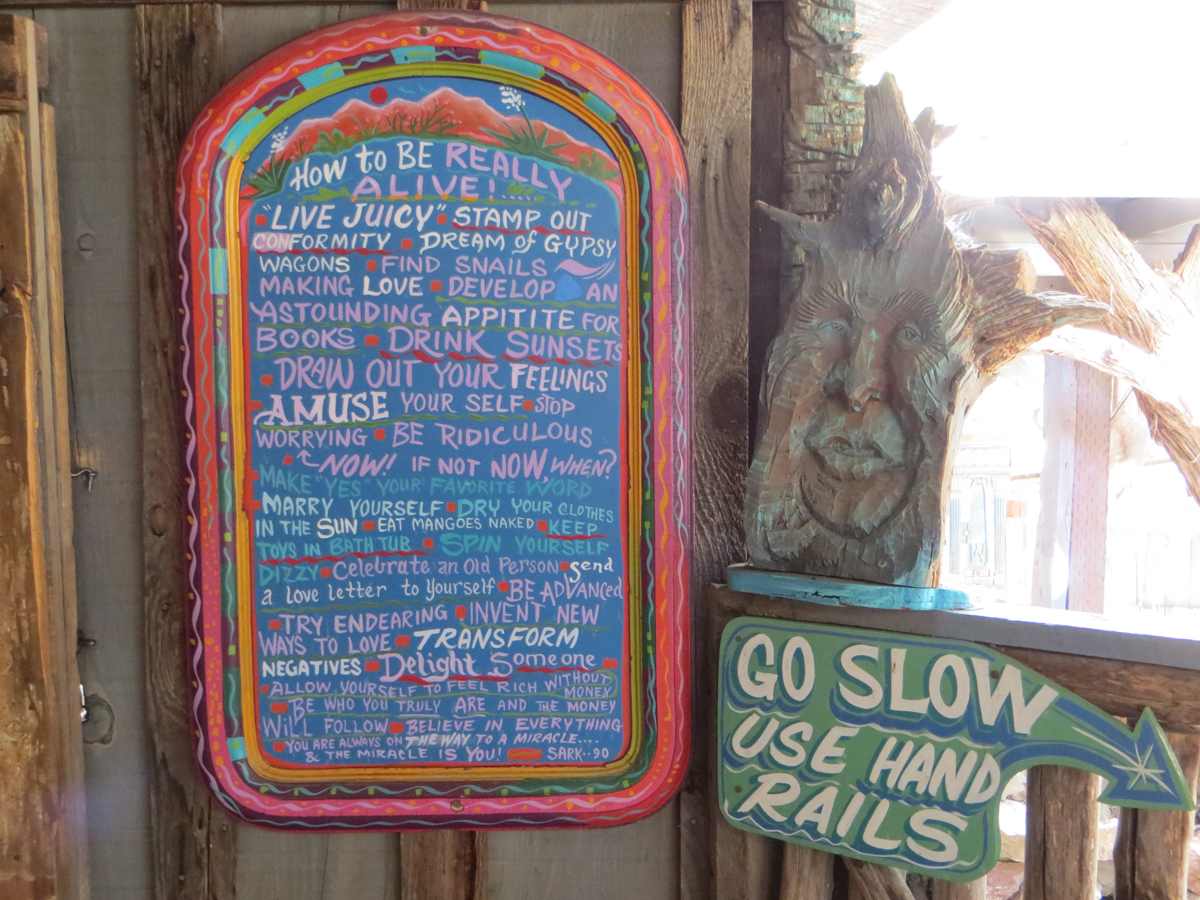 HOW to BE REALLY
ALIVE!....
"LIVE JUICY" STAMP OUT
CONFORMITY DREAM of GYPSY
WAGONS FIND SNAILS
MAKING LOVE DEVELOP AN
ASTOUNDING APPITITE FOR
BOOKS DRINK SUNSETS
DRAW OUT YOUR FEELINGS
AMUSE YOUR SELF STOP
WORRYING BE RIDICULOUS
NOW! IF NOT NOW, WHEN?
MAKE "YES" YOUR FAVORITE WORD
MARRY YOURSELF DRY YOUR CLOTHES
IN THE SUN EAT MANGOES NAKED KEEP
TOYS IN BATH TUR SPIN YOURSELF
DIZZY Celebrate an Old Person send
a love letter to Yourself BE ADVANCed
TRY ENDEARING INVENT NEW
WAYS TO LOVE TRANSFORM
NEGATIVES Delight Someone
ALLOW YOURSELF TO FEEL RICH WITHOUT
MONEY
BE WHO YOU TRULY ARE AND THE MONEY
WILL FOLLOW BELIEVE IN EVERYTHING
YOU ARE ALWAYS ON THE WAY TO A MIRACLE....
& THE MIRACLE IS YOU! SARK..90
GO SLOW
USE HAND
RAILS